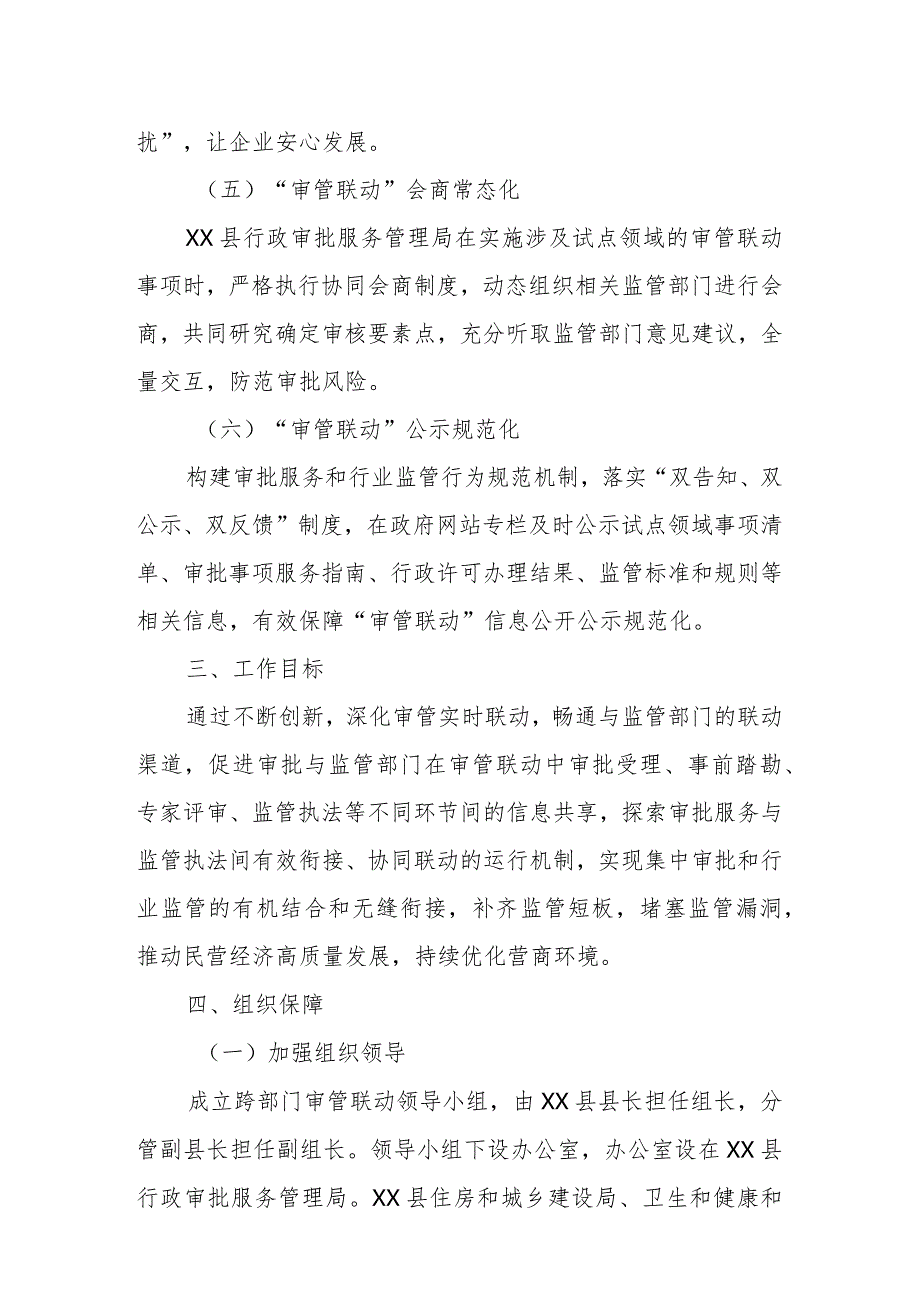 扰”，让企业安心发展。
（五）“审管联动”会商常态化
XX 县行政审批服务管理局在实施涉及试点领域的审管联动
事项时，严格执行协同会商制度，动态组织相关监管部门进行会
商，共同研究确定审核要素点，充分听取监管部门意见建议，全
量交互，防范审批风险。
（六）“审管联动”公示规范化
构建审批服务和行业监管行为规范机制，落实“双告知、双
公示、双反馈”制度，在政府网站专栏及时公示试点领域事项清
单、审批事项服务指南、行政许可办理结果、监管标准和规则等
相关信息，有效保障“审管联动”信息公开公示规范化。
三、工作目标
通过不断创新，深化审管实时联动，畅通与监管部门的联动
渠道，促进审批与监管部门在审管联动中审批受理、事前踏勘、
专家评审、监管执法等不同环节间的信息共享，探索审批服务与
监管执法间有效衔接、协同联动的运行机制，实现集中审批和行
业监管的有机结合和无缝衔接，补齐监管短板，堵塞监管漏洞，
推动民营经济高质量发展，持续优化营商环境。
四、组织保障
（一）加强组织领导
成立跨部门审管联动领导小组，由 XX 县县长担任组长，分
管副县长担任副组长。领导小组下设办公室，办公室设在 XX 县
行政审批服务管理局。XX 县住房和城乡建设局、卫生和健康和